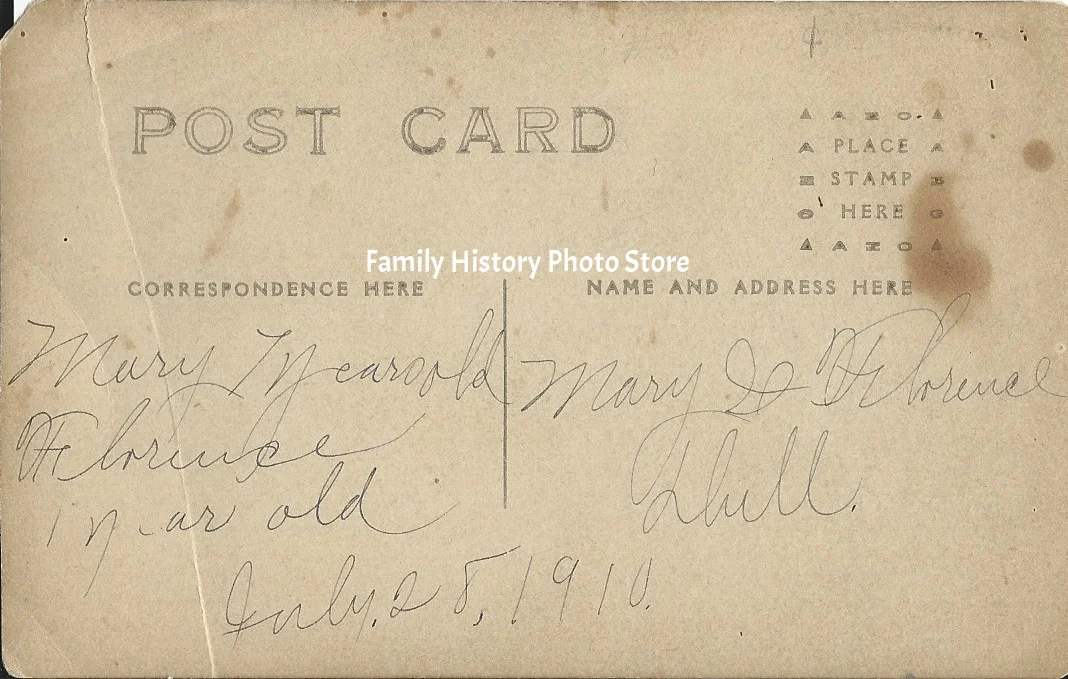 POST CARD
▲ A Z O ▲
A PLACE A
Z STAMP Z
O HERE O
▲ A Z O ▲
Family History Photo Store
CORRESPONDENCE HERE
NAME AND ADDRESS HERE
Mary 7 years old
Florence
1 year old
July, 28, 1910.
Mary & Florence